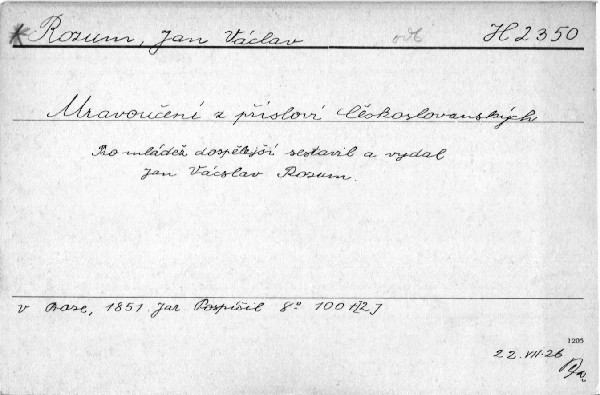 Rozum, Jan Václav H 2350
Mravoučení z přísloví českoslovanských
Pro mládež dospělejší sestavil a vydal
Jan Václav Rozum.
v Praze, 1851 Jar Pospíšil 8° 100 + [2]
1205
22.VII.26